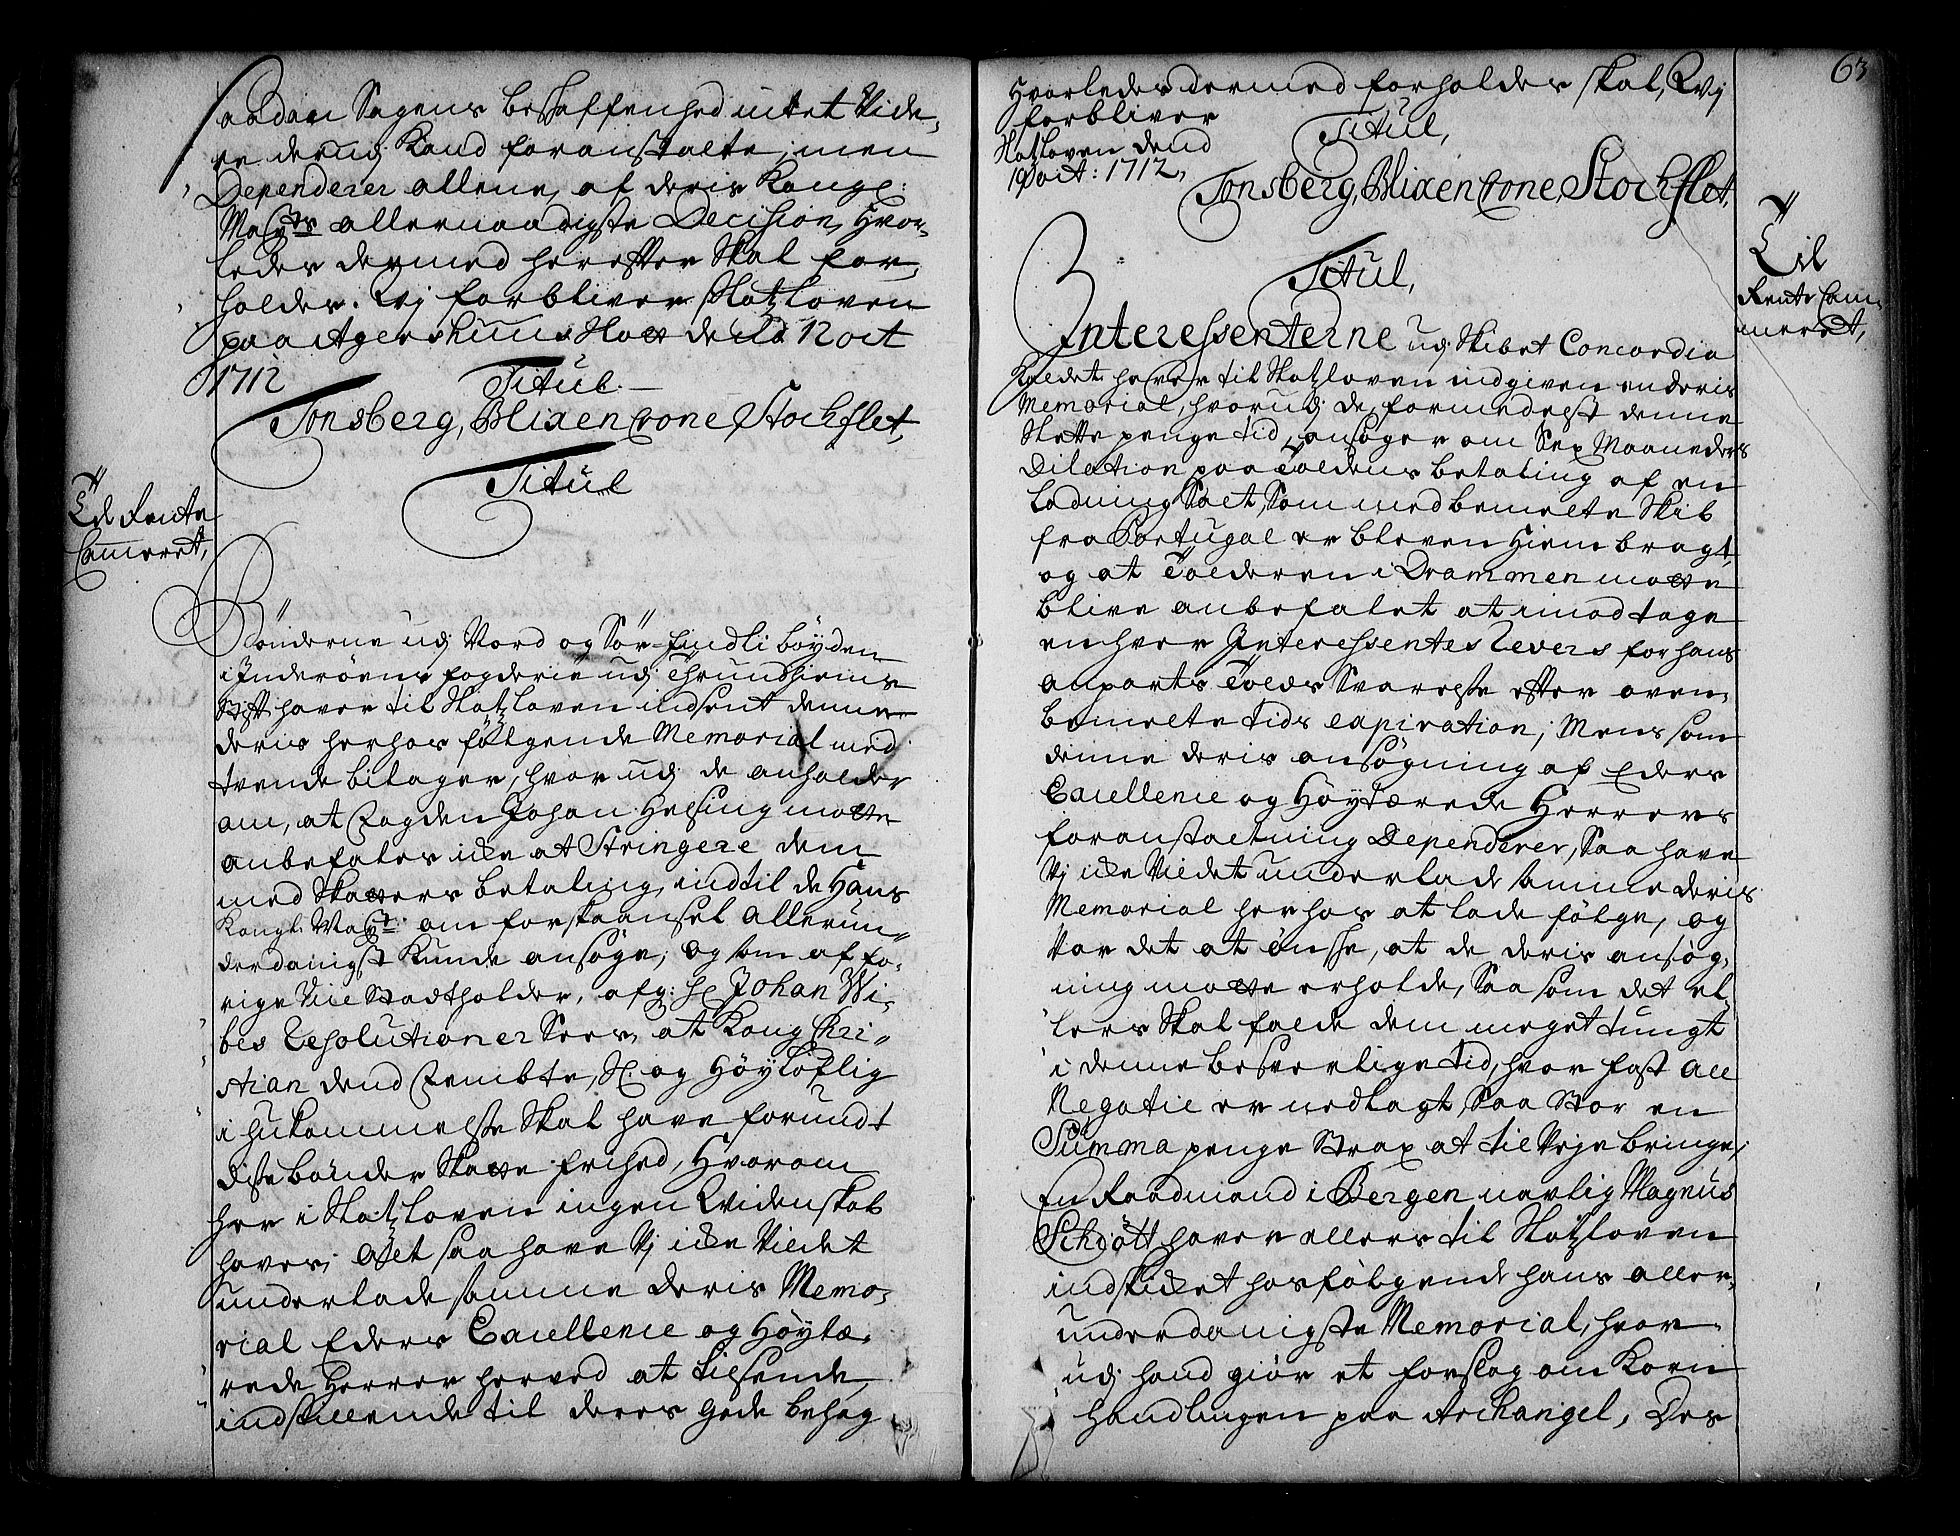 aadan Sagens beskaffenhed intet Vide¬
re derudj Kand foranstalte; men
Dependerer allene, af deris Kongl:
May:ts allernaadigste Decision, Hvor¬
ledes dermed herefter Skal for¬
holdes. Wj forbliver Slotzloven
paa Agershuus Slott den 12 oct
1712
Titul.
Tonsberg, Blixencrone, Stockflet,
Titul
Til Rente
Cammeret,
Bönderne udj Nord og Sör Findli böyden
i Inderöens fogderie udj Thrundhiems
Stift haver til Slotzloven indsent denne
deris herhos fölgende Memorial med
tvende bilager, hvorudj de anholder
om, at Fogden Johan Helsing motte
anbefales icke at Stringere dem
med Skatters betaling, indtil de Hans
Kongl: May:t om forskaansel allerun¬
derdanigst Kunde ansöge; og som af fo¬
rige Vice Stadtholder, afg: Hr Johan Wi¬
bes Resolutioner Sees, at Kong Chri¬
stian dend Fembte, Sl. og Höyloflig
i hukommelse Skal have forundt
disse bönder Skatte frihed, Hvorom
her i Slotzloven ingen Widenskab
haves; Altsaa have Vj icke Villet
underlade samme deris Memo¬
rial Eders Excellence og Höylæ¬
rede Herrer herved at tilsende,
indstillende til deres gode behag
63
Hvorledes dermed forholdes skal, Wj
forbliver
Slotzloven dend
19 oct: 1712,
Titul,
Tonsberg, Blixencrone, Stockflet,
Til
Rente Cam¬
meret,
Titul,
Interessenterne udj Skibet Concordia
Kaldet haver til Slotzloven indgiven en deris
Memorial, hvorudj de formedelst denne
Slette penge tid, ansöger om Sex Maaneders
Dilation paa Toldens betaling af en
ladning Salt, Som med bemelte Skib
fra Portugal er bleven Hiem bragt,
og at Tolderen i Drammen motte
blive anbefalet at imodtage
en hver Interessentes Revers for hans
anparts Tolds Svarelse efter oven¬
bemelte tids expiration; Mens som
denne deris ansögning af Eders
Excellence og Höylærede Herrers
foranstaltning Dependerer, Saa have
Vj icke Villet underlade samme deris
Memorial herhos at lade fölge, og
Var det at önske, at de deris ansög¬
ning motte erholde, Saa som det el¬
lers Skal falde dem meget tungt
i denne besverlige tid, hvor fast all
Negotie er nedlagt, Saa Stor en
Summa penge Strax at til Veje bringe;
En Raadmand i Bergen navlig Magnus
Schiött haver ellers til Slotzloven
indskicket hosfölgende hans aller¬
underdanigste Memorial, hvor¬
udj hand giör et forslag om Korn
handlingen paa Archangel, Des